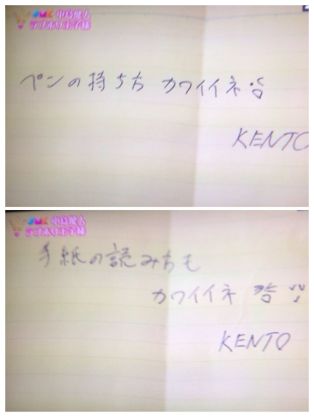 ペンの持ち方 カワイイネ
KENTO
手紙の読み方も
カワイイネ
KENTO